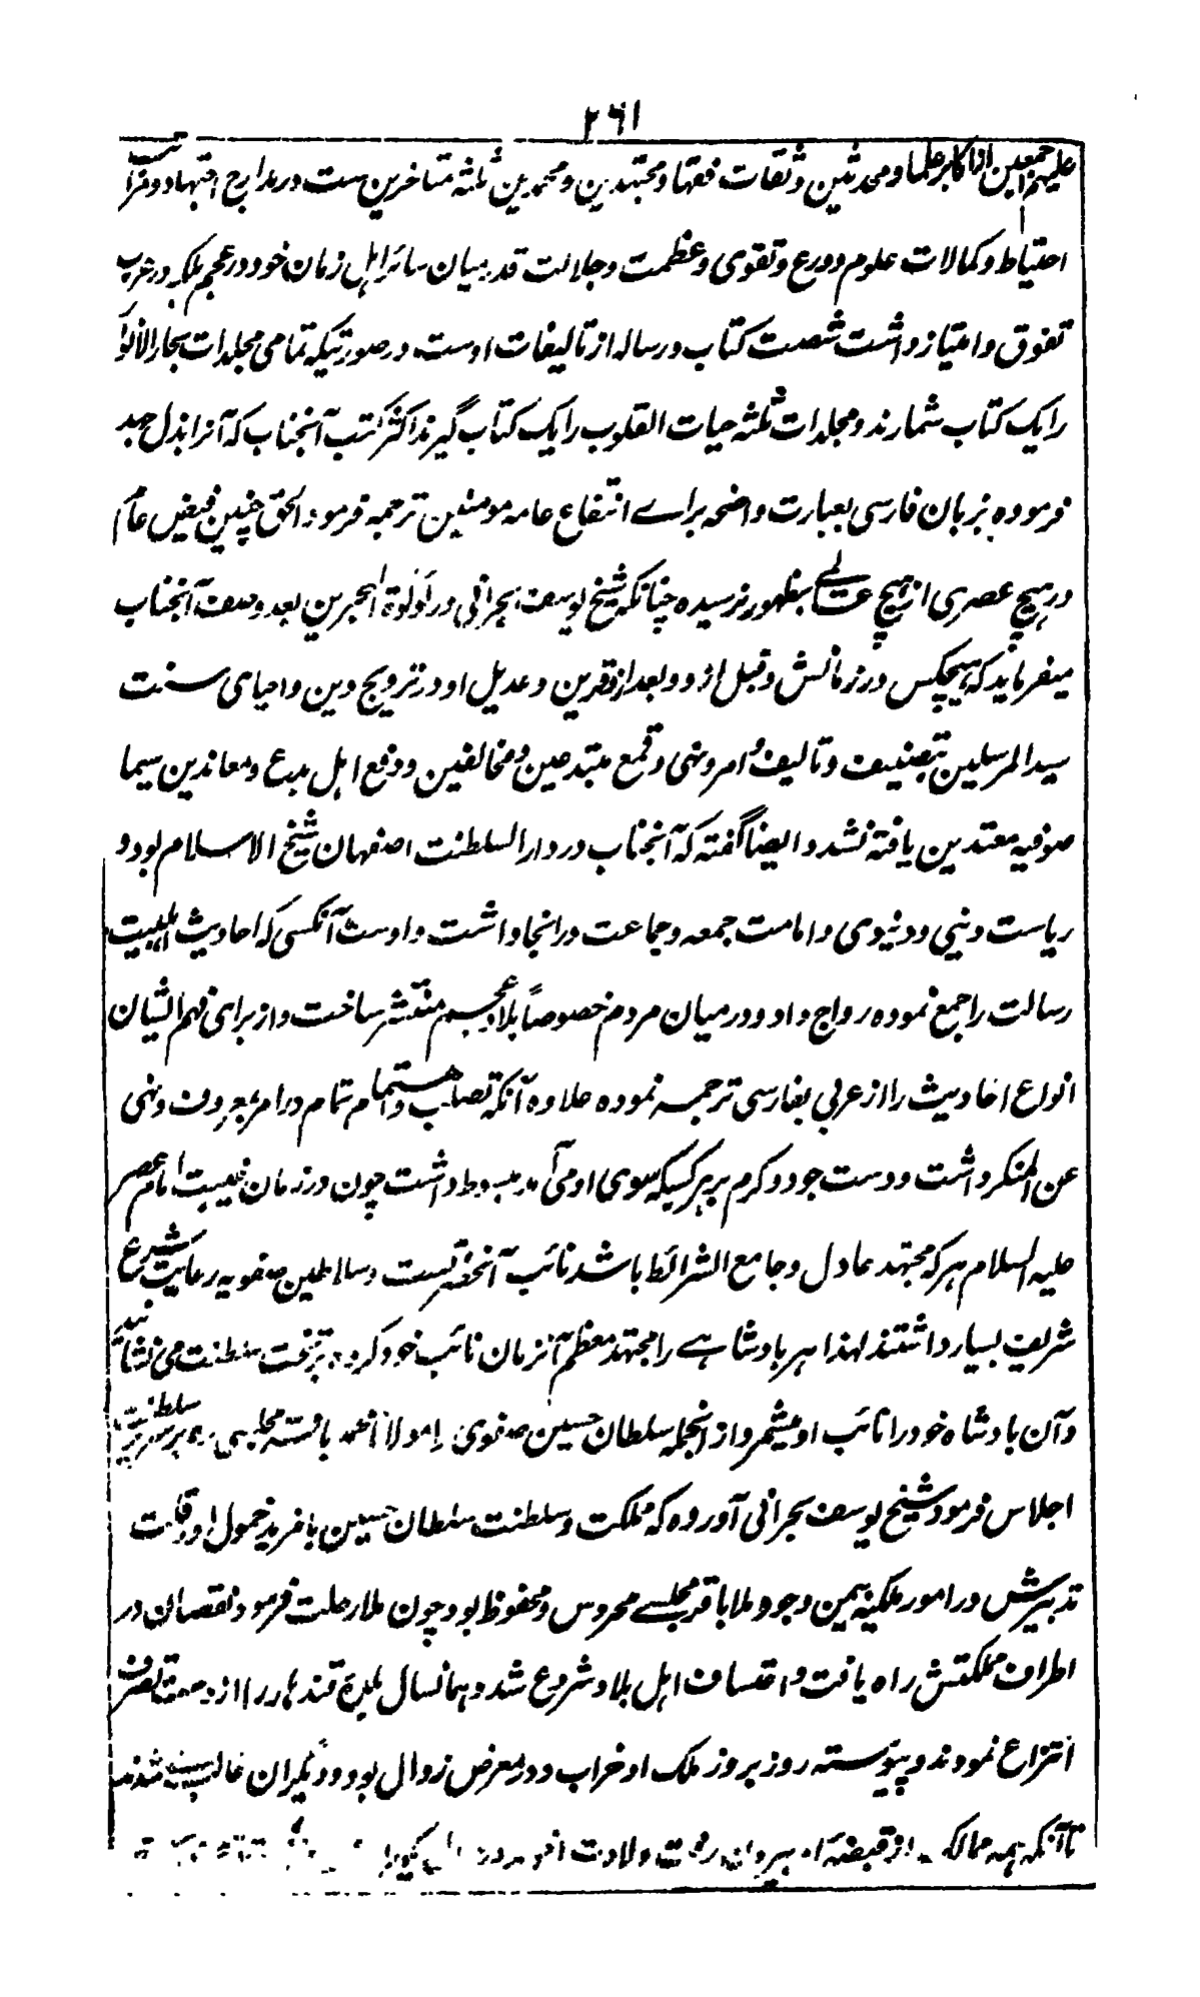 ٢٦١
علیهم اجمعین از اکابر علما و محدثین و ثقات فقها و مجتهدین و محمدین ثلثه متاخرین ست در مدارج اجتهاد و مراتب
احتیاط و کمالات علوم و ورع و تقوی و عظمت و جلالت قدر میان سائر اہل زمان خود در عجم بلکہ در عرب
تفوق و امتیاز داشت شصت کتاب و رساله از تالیفات اوست در صورتیکہ تمامی مجلدات بحار الانوار
را یک کتاب شمارند و مجلدات ثلثہ حیات القلوب را یک کتاب گیرند اکثر کتب آنجناب کہ آنرا بذل جہد
فرموده بزبان فارسی بعبارت واضحہ براے انتفاع عامہ مومنین ترجمہ فرمود الحق چنین فیض عام
در ہیچ عصری از ہیچ عالمے بظہور نرسیده چنانکہ شیخ یوسف بحرانی در لؤلؤة البحرین بعد وصف آنجناب
میفرماید کہ ہیچکس در زمانش و قبل ازو و بعد ازو قرین و عدیل او در ترویج دین و احیای سنت
سید المرسلین بتصنیف و تالیف و امر و نہی و قمع مبتدعین و مخالفین و دفع اہل بدع و معاندین سیما
صوفیہ معتدین یافتہ نشد و ایضا گفتہ کہ آنجناب در دار السلطنت اصفہان شیخ الاسلام بود و
ریاست دینی و دنیوی و امامت جمعہ و جماعت در انجا داشت و اوست آنکسی کہ احادیث اہلبیت
رسالت را جمع نموده رواج داد و در میان مردم خصوصاً بلاد عجم منتشر ساخت و از برای فہم ایشان
انواع احادیث را از عربی بفارسی ترجمہ نموده علاوه آنکہ تصلب و اہتمام تمام در امر بمعروف و نہی
عن المنکر داشت و دست جود و کرم بر ہر کسیکہ سوی او می آمد مبسوط داشت چون در زمان غیبت امام عصر
علیہ السلام ہر کہ مجتہد عادل و جامع الشرائط باشد نائب آنحضرتست و سلاطین صفویہ رعایت شرع
شریف بسیار داشتند لہذا ہر بادشاہے را مجتہد معظم آنزمان نائب خود کرده بر تخت سلطنت می نشانید
و آن بادشاه خود را نائب او میشمرد از انجملہ سلطان حسین صفوی را مولانا محمد باقر مجلسی بر سریر سلطنت
اجلاس فرمود شیخ یوسف بحرانی آورده کہ مملکت و سلطنت سلطان حسین با مزید خمول او و قلت
تدبیرش در امور ملکیہ بیمن وجود ملا باقر مجلسے محروس و محفوظ بود چون ملا رحلت فرمود نقصان در
اطراف مملکتش راه یافت و اعتساف اہل بلاد شروع شد و ہمانسال بلدۀ قندہار را از دست تصرفش
انتزاع نمودند و پیوستہ روز بروز ملک او خراب و در معرض زوال بود و دیگران غالب میشدند
تا آنکہ ہمہ ممالک از قبضۂ او بیرون رفت ولادت